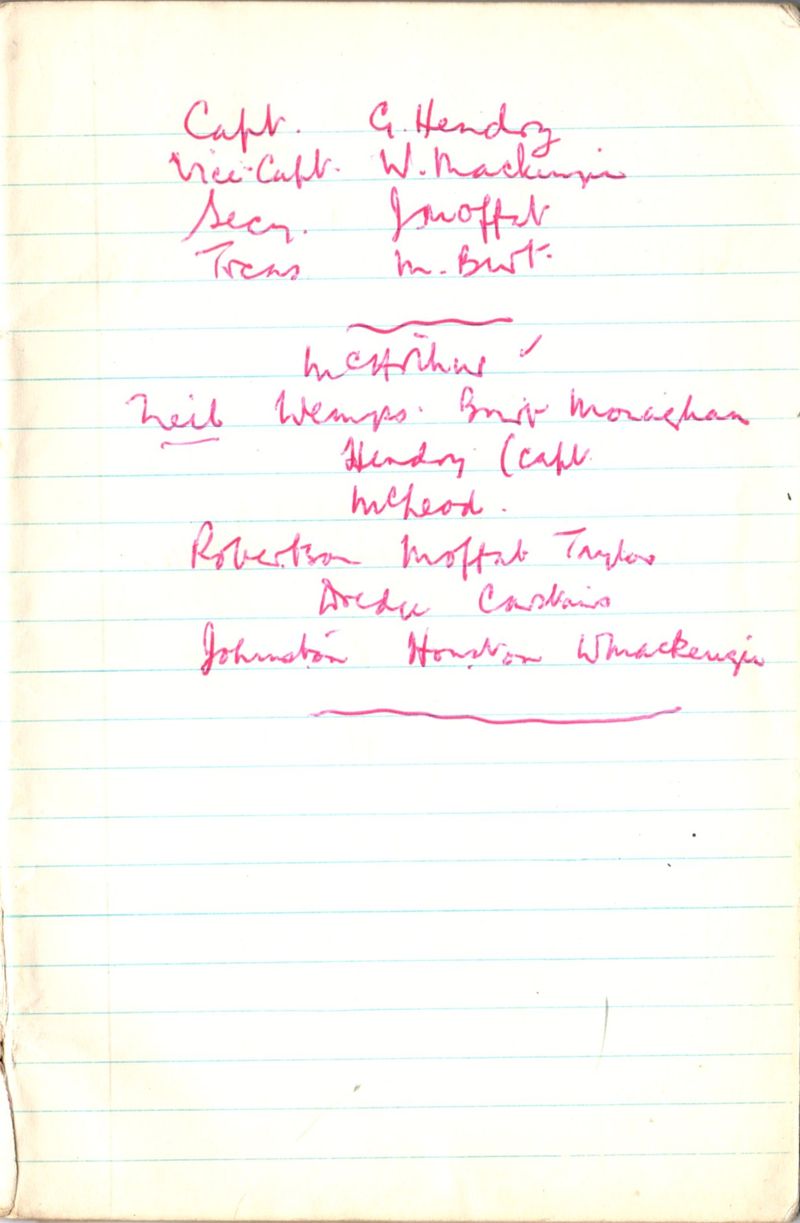 Capt. G. Hendry
Vice-Capt. W. Mackenzie
Secy. J Moffat
Treas M. Burt.
McArthur ✓
Neil Wemyss. Burt Monaghan
Hendry (capt
McLeod.
Robertson Moffat Taylor
Dredge Carstairs
Johnston Houston W Mackenzie